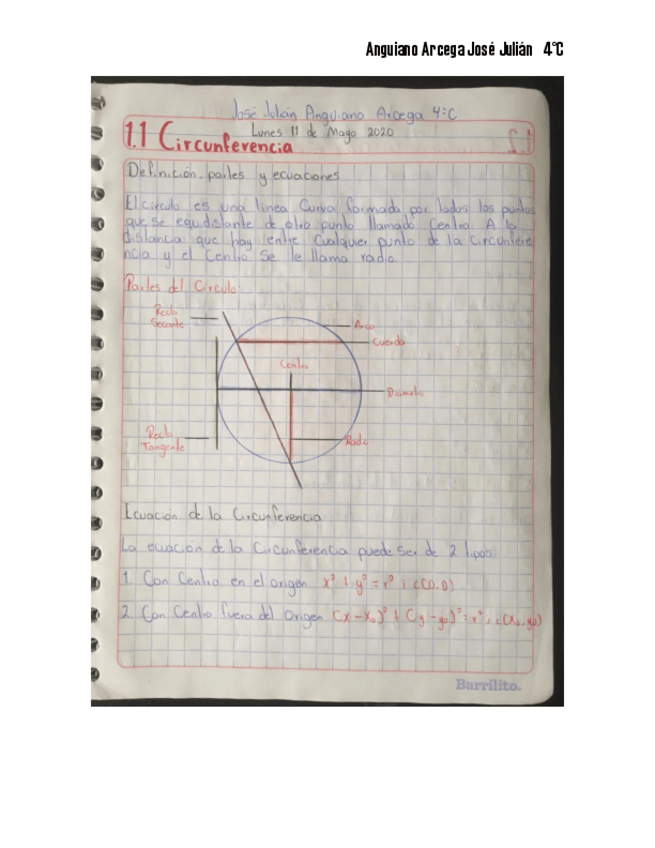 Anguiano Arcega José Julián 4°C
José Julián Anguiano Arcega 4°C
Lunes 11 de Mayo 2020
1.1 Circunferencia
Definición, partes y ecuaciones
El circulo es una linea Curva formada por todos los puntos
que se equidistante de otro punto llamado Centro. A la
distancia que hay entre Cualquier punto de la Circunfere
ncia y el Centro Se le llama radio.
Partes del Circulo:
Recta
Secante
Arco
Cuerda
Centro
Diametro
Recta
Tangente
Radio
Ecuación de la Circunferencia
La ecuación de la Circunferencia puede Ser de 2 tipos:
1. Con Centro en el origen x² + y² = r² ; c(0,0)
2. Con Centro fuera del Origen (x-x₀)² + (y-y₀)² = r² ; c(x₀,y₀)
Barrilito.